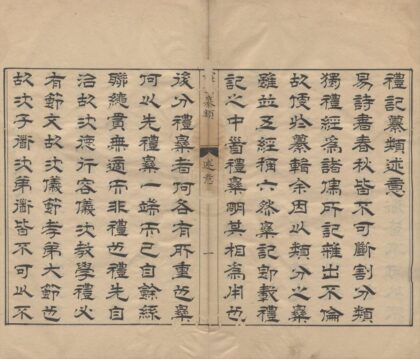 禮記纂類述意
易詩書春秋皆不可斷割分類
獨禮經爲諸儒所記雜出不倫
故便於纂輯余因以類分之樂
雖並五經稱六然樂記卽載禮
記之中禮樂明其相爲用也
纂類
述意
一
後分禮樂者何各有所重也
何以先禮樂一端而已自餘絲
聯繩貫無適而非禮也禮先自
治故次德行容儀次教學禮必
有節文故次儀節孝弟大節也
故次子衟次弟衟皆不可以不